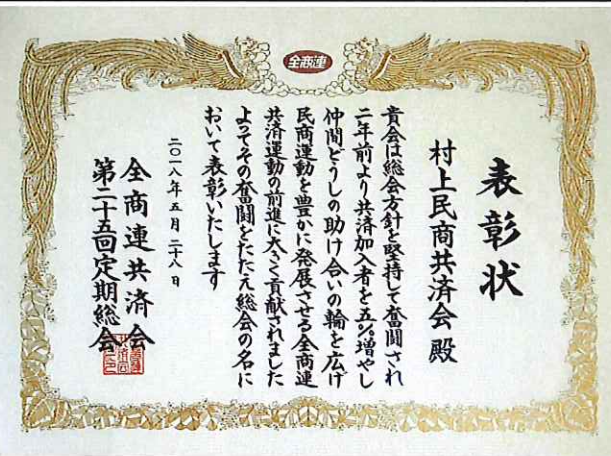 全商連
表彰状
村上民商共済会 殿
貴会は総会方針を堅持して奮闘され
二年前より共済加入者を五%増やし
仲間どうしの助け合いの輪を広げ
民商運動を豊かに発展させる全商連
共済運動の前進に大きく貢献されました
よってその奮闘をたたえ総会の名に
おいて表彰いたします
二〇一八年五月二十八日
全商連共済会
第二十五回定期総会